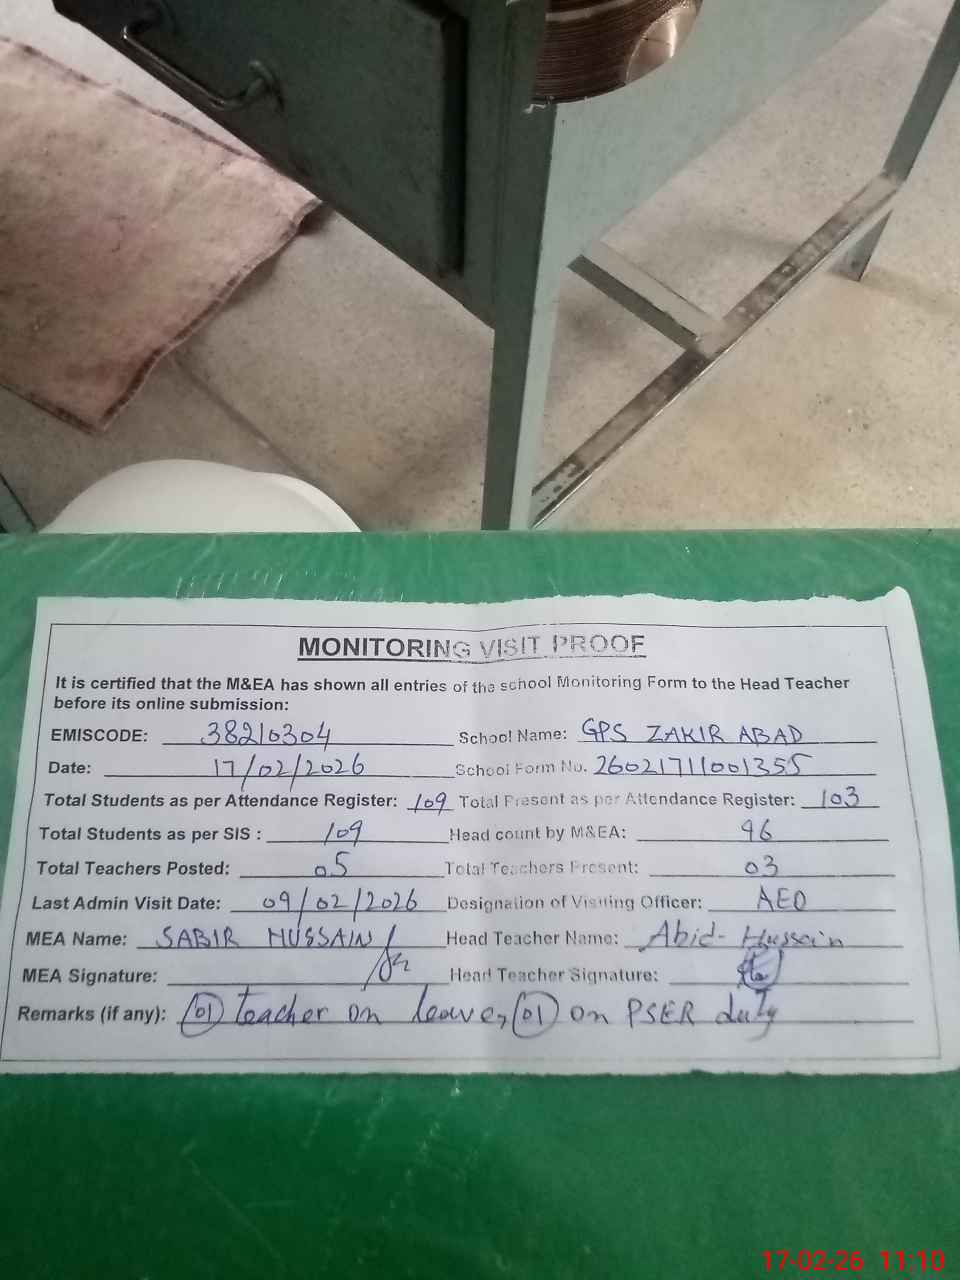 MONITORING VISIT PROOF
It is certified that the M&EA has shown all entries of the school Monitoring Form to the Head Teacher
before its online submission:
EMISCODE: 38210304 School Name: GPS ZAKIR ABAD
Date: 17/02/2026 School Form No. 26021711001355
Total Students as per Attendance Register: 109 Total Present as per Attendance Register: 103
Total Students as per SIS : 109 Head count by M&EA: 96
Total Teachers Posted: 05 Total Teachers Present: 03
Last Admin Visit Date: 09/02/2026 Designation of Visiting Officer: AEO
MEA Name: SABIR HUSSAIN Head Teacher Name: Abid-Hussain
MEA Signature: Head Teacher Signature:
Remarks (if any): (01) teacher on leave, (01) on PSER duty
17-02-26 11:10